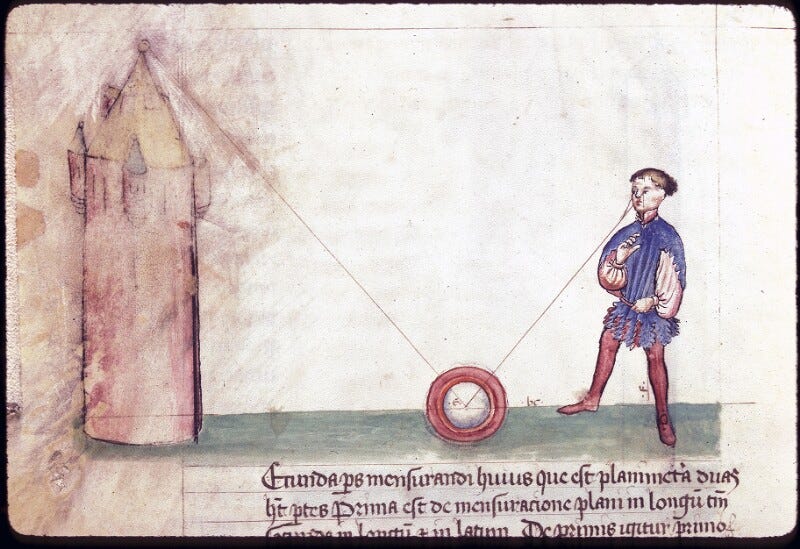 Ecunda ps mensurandi huius que est planimetͣa duas
hт̄ ptes Prima est de mensuracione plani in longū tm̄
Secunda in longū ⁊ in latum. De primis igitur primo